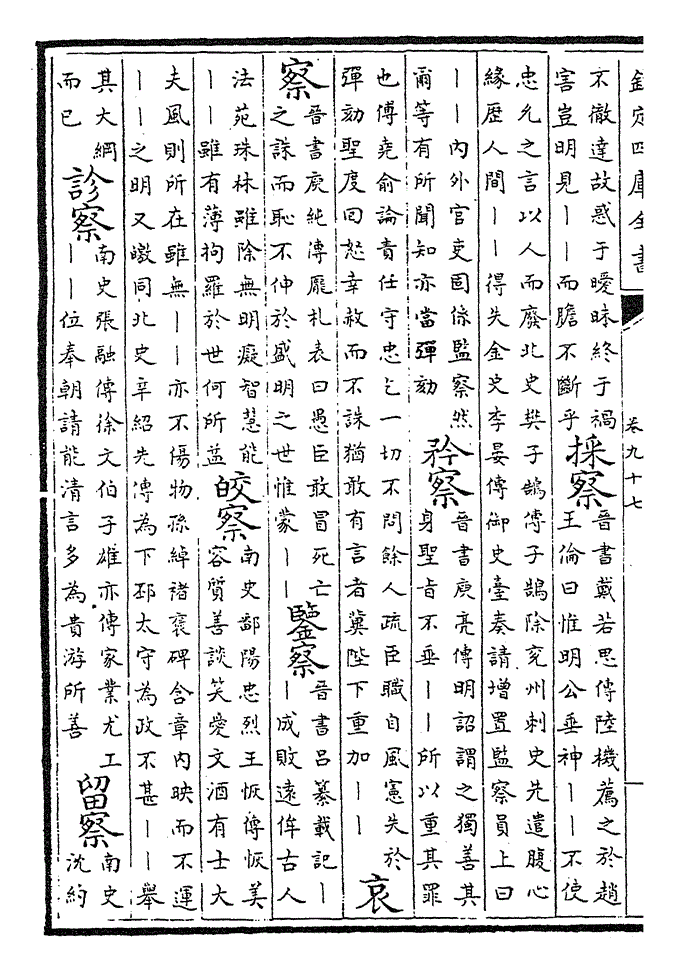 欽定四庫全書
卷九十七
不徹達故惑于曖昧終于禍
害豈明見——而膽不斷乎
採察
晉書戴若思傳陸機薦之於趙
王倫曰惟明公垂神——不使
忠允之言以人而廢北史樊子鵠傳子鵠除兖州刺史先遣腹心
緣歷人間——得失金史李晏傳御史臺奏請增置監察員上曰
——内外官吏固係監察然
爾等有所聞知亦當彈劾
矜察
晉書庾亮傳明詔謂之獨善其
身聖旨不垂——所以重其罪
也傅堯俞論責任守忠乞一切不問餘人疏臣職自風憲失於
彈劾聖度回怒幸赦而不誅猶敢有言者冀陛下重加——
哀
察
晉書庾純傳龐札表曰愚臣敢冒死亡
之誅而恥不仲於盛明之世惟蒙——
鑒察
晉書呂纂載記—
—成敗遠侔古人
法苑珠林雖除無明癡智慧能
——雖有薄拘羅於世何所益
皎察
南史鄱陽忠烈王恢傳恢美
容質善談笑愛文酒有士大
夫風則所在雖無——亦不傷物孫綽禇裒碑含章内映而不運
——之明又皦同北史辛紹先傳為下邳太守為政不甚——舉
其大綱
而已
診察
南史張融傳徐文伯子雄亦傳家業尤工
——位奉朝請能清言多為貴游所善
留察
南史
沈約